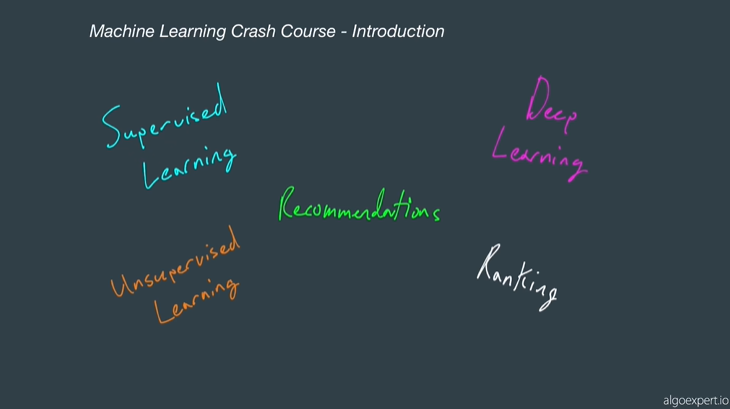 Machine Learning Crash Course - Introduction
Supervised
Learning
Deep
Learning
Recommendations
Unsupervised
Learning
Ranking
algoexpert.io